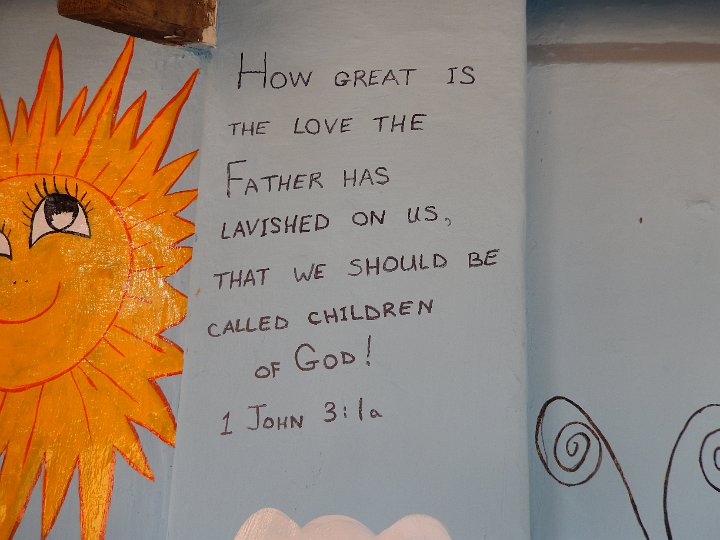 How GREAT IS
THE LOVE THE
FATHER HAS
LAVISHED ON US,
THAT WE SHOULD BE
CALLED CHILDREN
OF GOD!
1 JOHN 3:1a